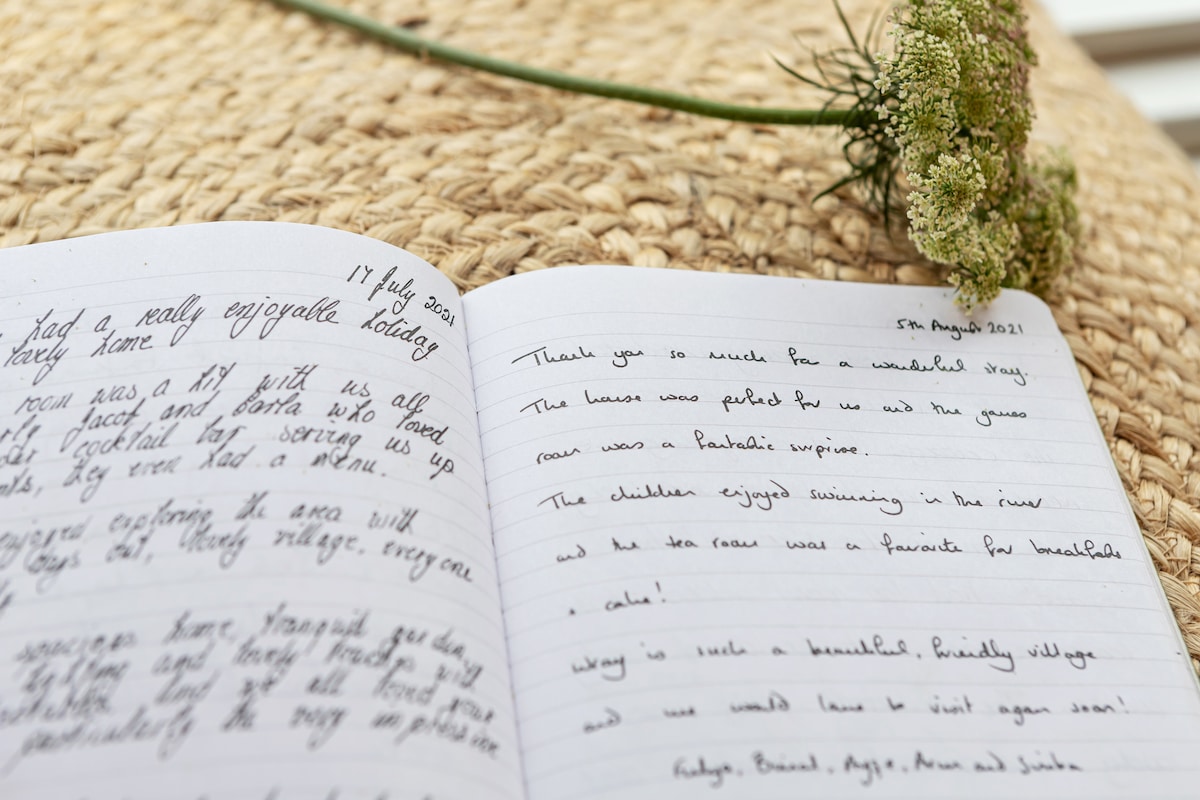 17 July 2021
had a really enjoyable holiday
lovely home
room was a hit with us all
Jacob and Carla who loved
cocktail bar serving us up
they even had a menu.
enjoyed exploring the area with
days out, lovely village, everyone
spacious home, tranquil garden,
and lovely touches with
and we all loved your
particularly the very impressive
5th August 2021
Thank you so much for a wonderful stay.
The house was perfect for us and the games
room was a fantastic surprise.
The children enjoyed swimming in the river
and the tea room was a favourite for breakfasts
+ cake!
Wray is such a beautiful, friendly village
and we would love to visit again soon!
and